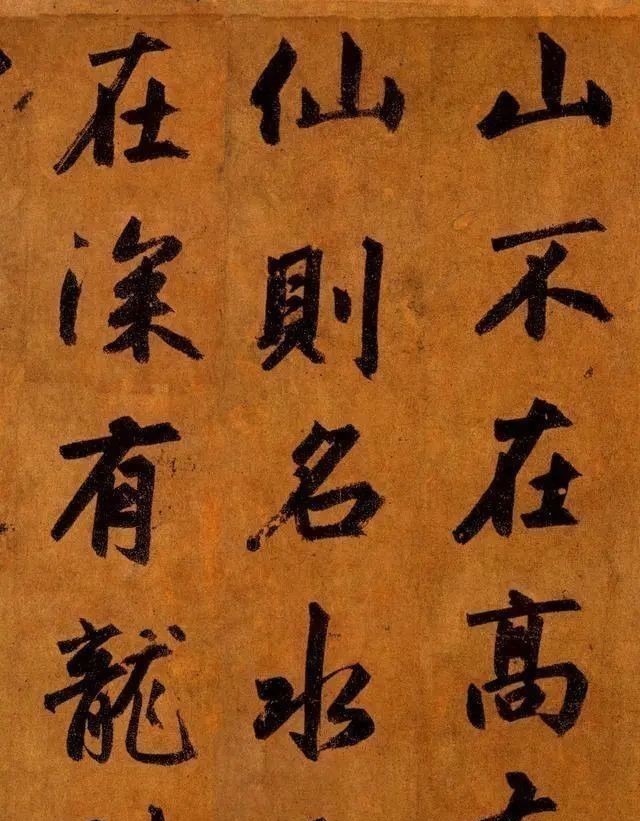 山不在高
仙則名水
在深有龍